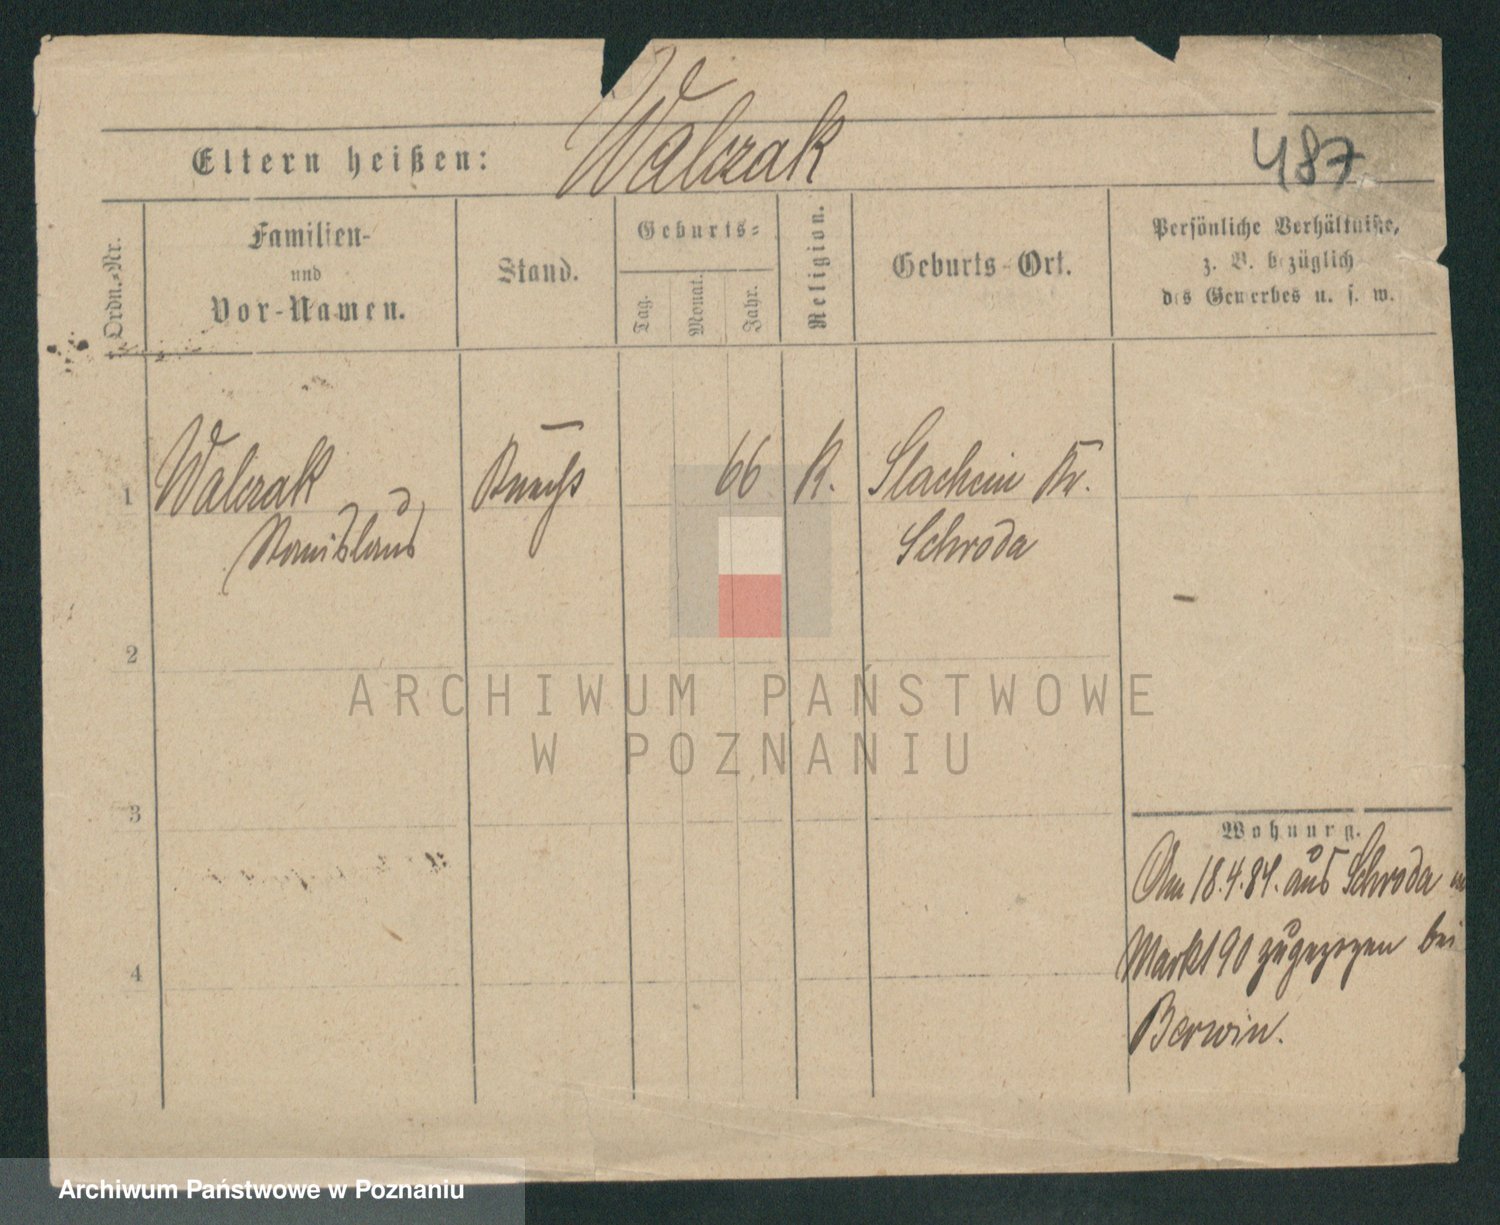 Walczak
487
Eltern heißen:
Ordn.-Nr.
Familien-
und
Vor-Namen.
Stand.
Geburts-
Tag.
Monat.
Jahr.
Religion.
Geburts-Ort.
Persönliche Verhältnisse,
z. B. bezüglich
des Gewerbes u. s. w.
1
Walczak
Stanislaus
Knecht
66
K.
Slachcin Kr.
Schroda
2
ARCHIWUM PAŃSTWOWE
W POZNANIU
3
Wohnung.
Am 18.4.84. aus Schroda
Markt 90 zugezogen bei
Berwin.
4
Archiwum Państwowe w Poznaniu